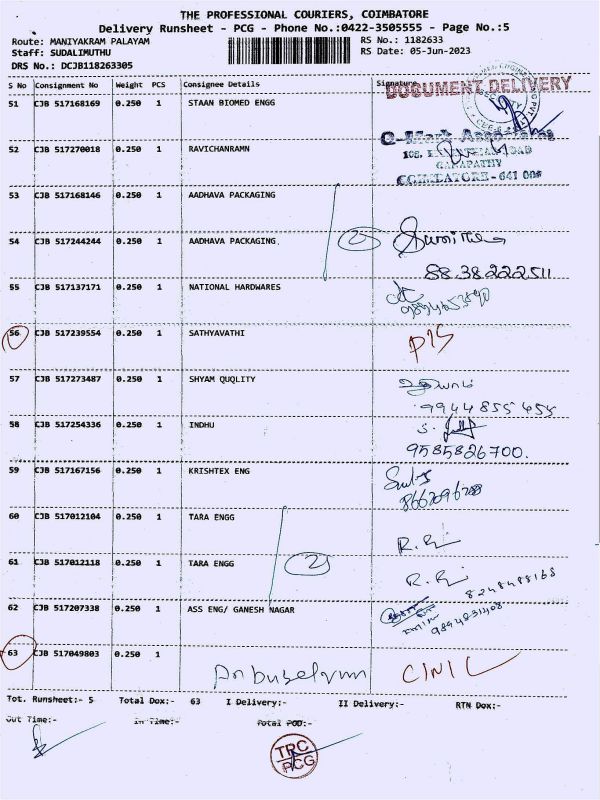 THE PROFESSIONAL COURIERS, COIMBATORE
Delivery Runsheet - PCG - Phone No.:0422-3505555 - Page No.:5
Route: MANIYAKRAM PALAYAM
RS No.: 1182633
Staff: SUDALIMUTHU
RS Date: 05-Jun-2023
DRS No.: DCJB118263305
S No Consignment No Weight PCS Consignee Details Signature
DOCUMENT DELIVERY
51 CJB 517168169 0.250 1 STAAN BIOMED ENGG
52 CJB 517270018 0.250 1 RAVICHANRAMN
GANAPATHY
COIMBATORE - 641 006
53 CJB 517168146 0.250 1 AADHAVA PACKAGING
54 CJB 517244244 0.250 1 AADHAVA PACKAGING
88.38222511
55 CJB 517137171 0.250 1 NATIONAL HARDWARES
56 CJB 517239554 0.250 1 SATHYAVATHI
P/S
57 CJB 517273487 0.250 1 SHYAM QUQLITY
9944855455
58 CJB 517254336 0.250 1 INDHU
9585826700.
59 CJB 517167156 0.250 1 KRISHTEX ENG
60 CJB 517012104 0.250 1 TARA ENGG
61 CJB 517012118 0.250 1 TARA ENGG
8248488168
62 CJB 517207338 0.250 1 ASS ENG/ GANESH NAGAR
9894831408
63 CJB 517049803 0.250 1
Tot. Runsheet:- 5 Total Dox:- 63 I Delivery:- II Delivery:- RTN Dox:-
Out Time:- In Time:- Total POD:-
TRC
PCG